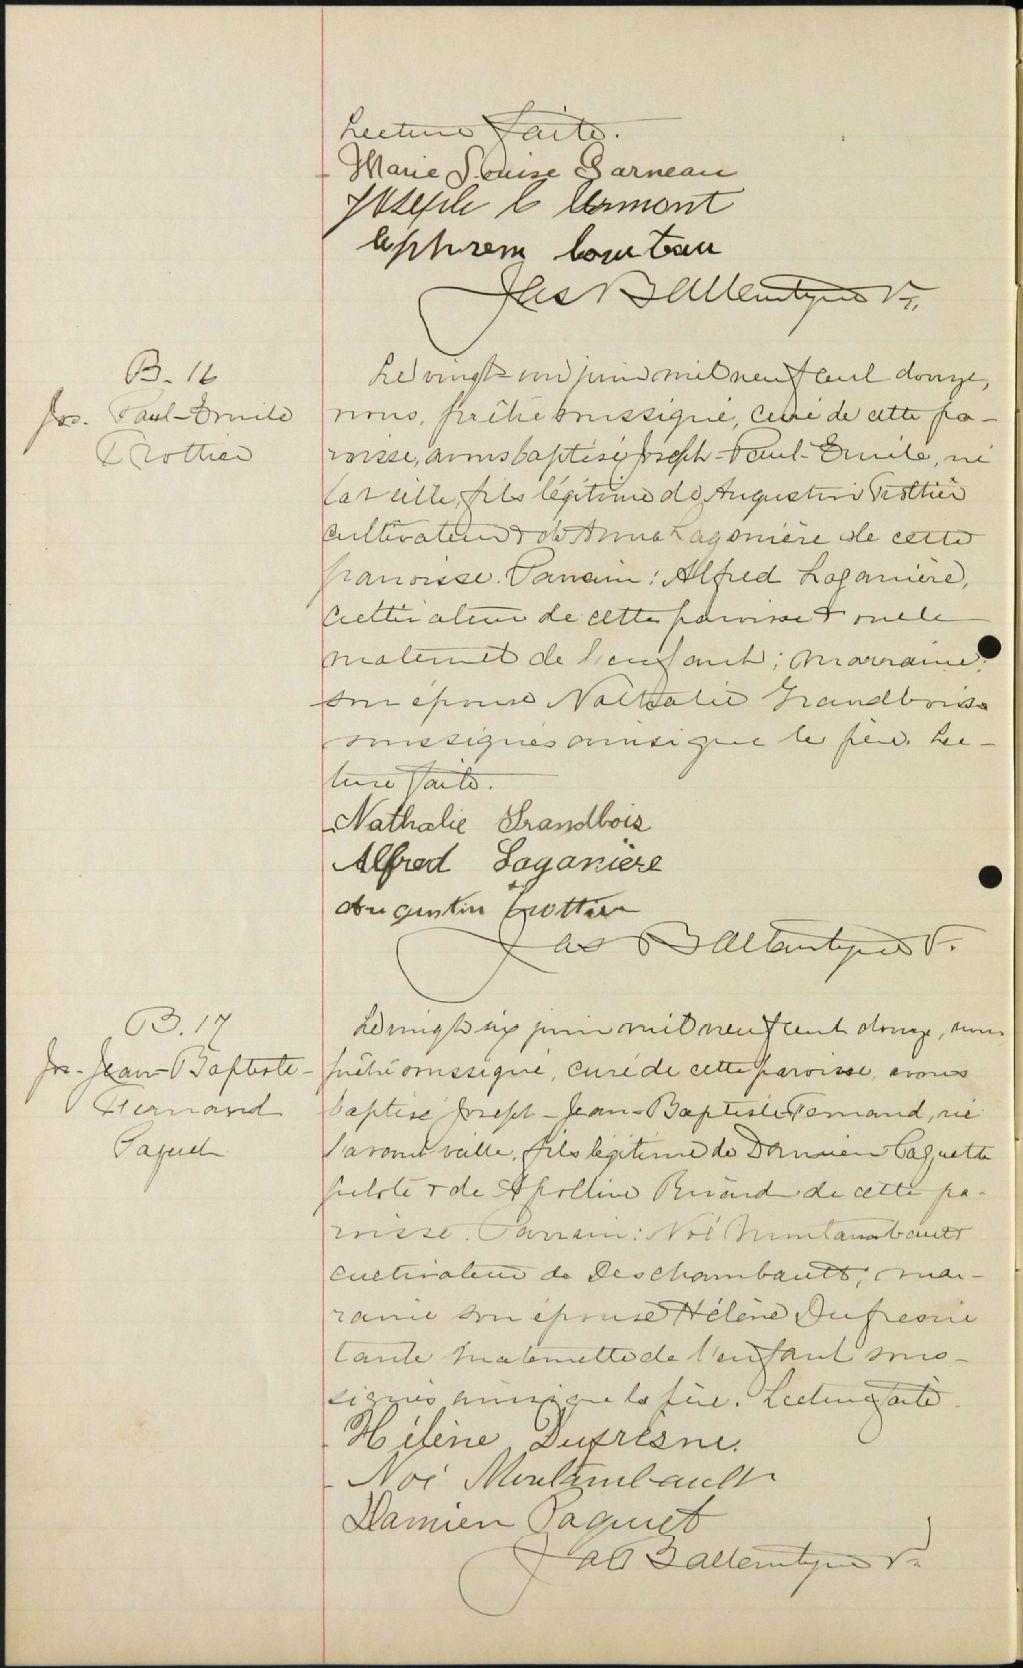 Lecture faite.
Marie Louise Garneau
Joseph C Ermont
Ephrem Couteau
Jas Ballentyne Ptr.
B. 16
Jos. Paul-Emile
Trottier
Le vingt-un juin mil neuf cent douze,
nous, prêtre soussigné, curé de cette pa-
roisse, avons baptisé Joseph-Paul-Emile, né
la veille, fils légitime de Augustin Trottier
cultivateur & de Anna Laganière de cette
paroisse. Parrain: Alfred Laganière,
cultivateur de cette paroisse & oncle
maternel de l'enfant; marraine:
son épouse Nathalie Grandbois
soussignés ainsi que le père. Lec-
ture faite.
Nathalie Grandbois
Alfred Laganière
Augustin Trottier
Jas Ballentyne Ptr.
B. 17
Jos-Jean-Baptiste-
Fernand
Paquet
Le vingt-six juin mil neuf cent douze, nous
prêtre soussigné, curé de cette paroisse, avons
baptisé Joseph-Jean-Baptiste-Fernand, né
l'avant veille, fils légitime de Damien Paquette
pilote & de Apolline de cette pa-
roisse. Parrain: Noé Montambault
cultivateur de Deschambault; mar-
raine son épouse Hélène Dufresne
tante maternelle de l'enfant sous-
signés ainsi que le père. Lecture faite.
Hélène Dufresne.
Noé Montambault
Damien Paquet
Jas Ballentyne Ptr.